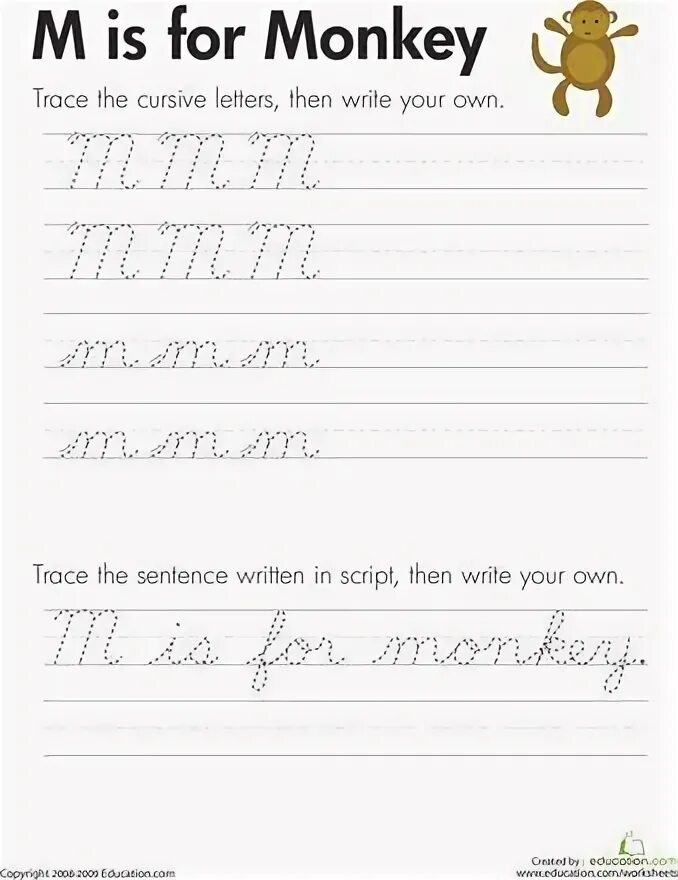 M is for Monkey
Trace the cursive letters, then write your own.
M M M
M M M
m m m
m m m
Trace the sentence written in script, then write your own.
M is for monkey.
Created by : education.com
Copyright 2008-2009 Education.com
www.education.com/worksheets